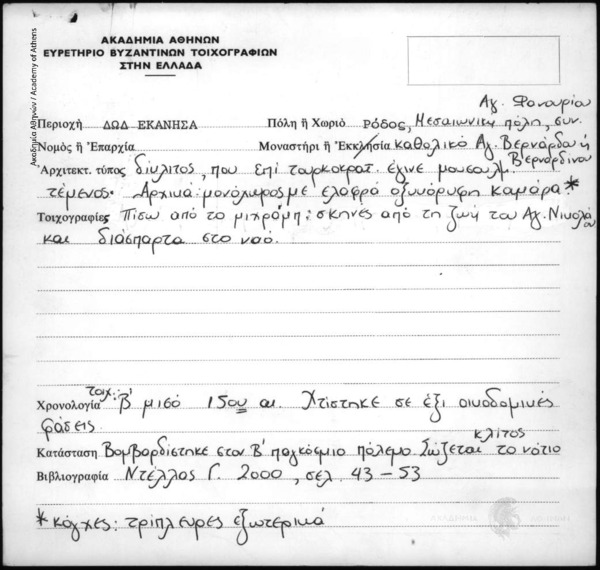 Ακαδημία Αθηνών / Academy of Athens
ΑΚΑΔΗΜΙΑ ΑΘΗΝΩΝ
ΕΥΡΕΤΗΡΙΟ ΒΥΖΑΝΤΙΝΩΝ ΤΟΙΧΟΓΡΑΦΙΩΝ
ΣΤΗΝ ΕΛΛΑΔΑ
Αγ. Φανουρίου
Περιοχὴ ΔΩΔΕΚΑΝΗΣΑ Πόλη ἢ Χωριὸ Ρόδος, Μεσαιωνική πόλη, συν.
Νομὸς ἢ Ἐπαρχία Μοναστήρι ἢ Ἐκκλησία καθολικό Αγ. Βερνάρδου ή
Βερναρδίνου
Ἀρχιτεκτ. τύπος δίκλιτος, που επί τουρκοκρατ. έγινε μουσουλμ.
τέμενος. Αρχικά μονόχωρος με ελαφρά οξυκόρυφη καμάρα*
Τοιχογραφίες Πίσω από το μιχράμπ: σκηνές από τη ζωή του Αγ. Νικολάου
και διάσπαρτα στο ναό.
τοιχ:
Χρονολογία Β' μισό 15ου αι. Χτίστηκε σε έξι οικοδομικές
φάσεις
κλίτος
Κατάσταση Βομβαρδίστηκε στον Β' παγκόσμιο πόλεμο Σώζεται το νότιο
Βιβλιογραφία Ντέλλος Γ. 2000, σελ. 43-53
* κόγχες: τρίπλευρες εξωτερικά